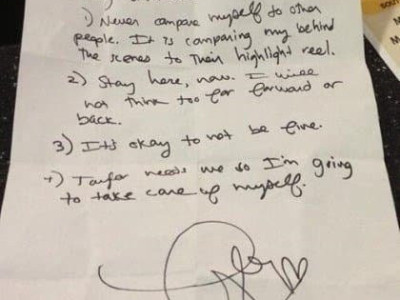 1) Never compare myself to other
people. It is comparing my behind
the scenes to their highlight reel.
2) Stay here, now. I will
not think too far forward or
back.
3) It's okay to not be fine.
4) Taylor needs me so I'm going
to take care of myself.